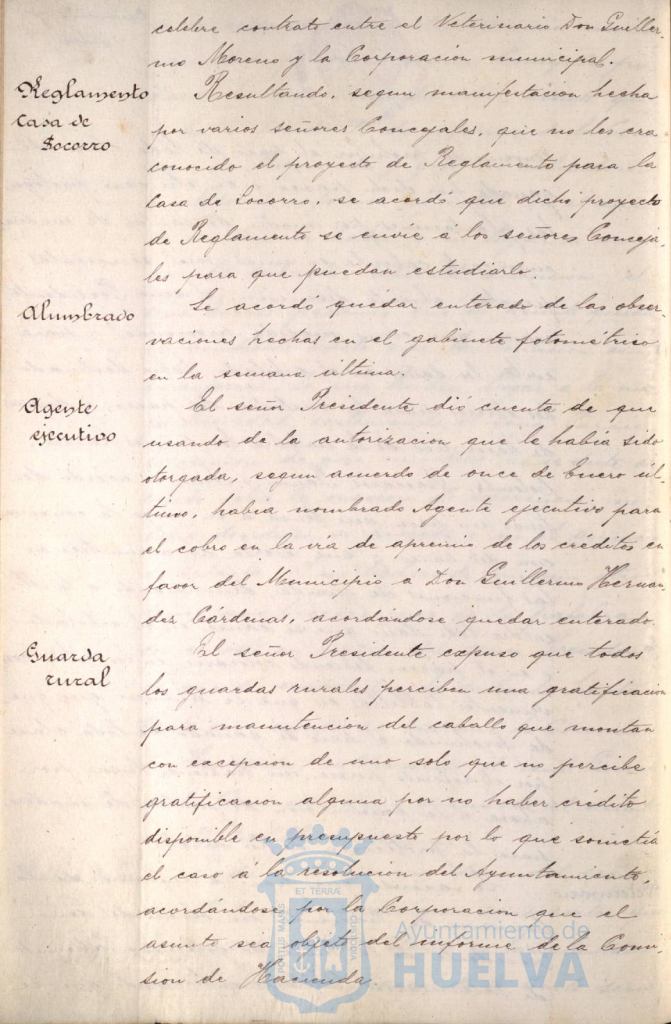 celebre contrato entre el Veterinario Don Guiller-
mo Moreno y la Corporacion municipal.
Reglamento
Casa de
Socorro
Resultando, segun manifestacion hecha
por varios señores Concejales, que no les era
conocido el proyecto de Reglamento para la
Casa de Socorro, se acordó que dicho proyecto
de Reglamento se envíe á los señores Conceja-
les para que puedan estudiarlo.
Alumbrado
Se acordó quedar enterado de las obser-
vaciones hechas en el gabinete fotométrico
en la semana última.
Agente
ejecutivo
El señor Presidente dió cuenta de que
usando de la autorizacion que le habia sido
otorgada, segun acuerdo de once de Enero úl-
timo, habia nombrado Agente ejecutivo para
el cobro en la vía de apremio de los créditos en
favor del Municipio á Don Guillermo Hernan-
dez Cárdenas, acordándose quedar enterado.
Guarda
rural
El señor Presidente expuso que todos
los guardas rurales perciben una gratificacion
para manutencion del caballo que montan
con excepcion de uno solo que no percibe
gratificacion alguna por no haber crédito
disponible en presupuesto por lo que sometía
el caso á la resolucion del Ayuntamiento,
acordándose por la Corporacion que el
asunto sea objeto del informe de la Comi-
sion de Hacienda.
ET TERRÆ
PORTUS MARIS
CUSTODIA
Ayuntamiento de
HUELVA